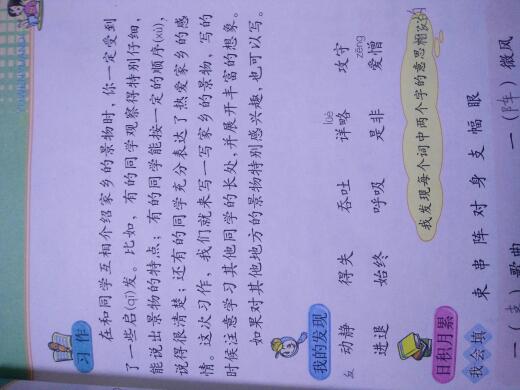 习作
在和同学互相介绍家乡的景物时，你一定受到
了一些启(qǐ)发。比如，有的同学观察得特别仔细，
能说出景物的特点；有的同学能按一定的顺序(xù)，
说得很清楚；还有的同学充分表达了热爱家乡的感
情。这次习作，我们就来写一写家乡的景物，写的
时候注意学习其他同学的长处，并展开丰富的想象。
如果对其他地方的景物特别感兴趣，也可以写。
我的发现
lüè
动静 得失 吞吐 详略 攻守
zēng
进退 始终 呼吸 是非 爱憎
我发现每个词中两个字的意思相反的
日积月累
我会填
束 串 阵 对 身 支 幅 眼
一（支）歌曲 一（阵）微风